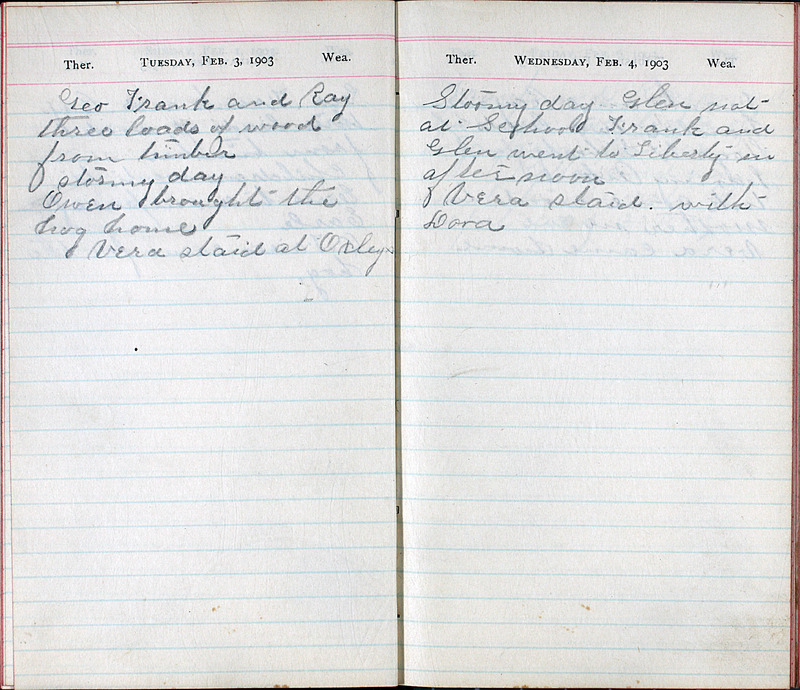 Ther. TUESDAY, FEB. 3, 1903 Wea.
Geo Frank and Ray
three loads of wood
from timber
stormy day
Owen brought the
hog home
Vera staid at Oxleys
Ther. WEDNESDAY, FEB. 4, 1903 Wea.
Stormy day Glen not
at School Frank and
Glen went to Liberty in
after noon
Vera staid. with
Dora